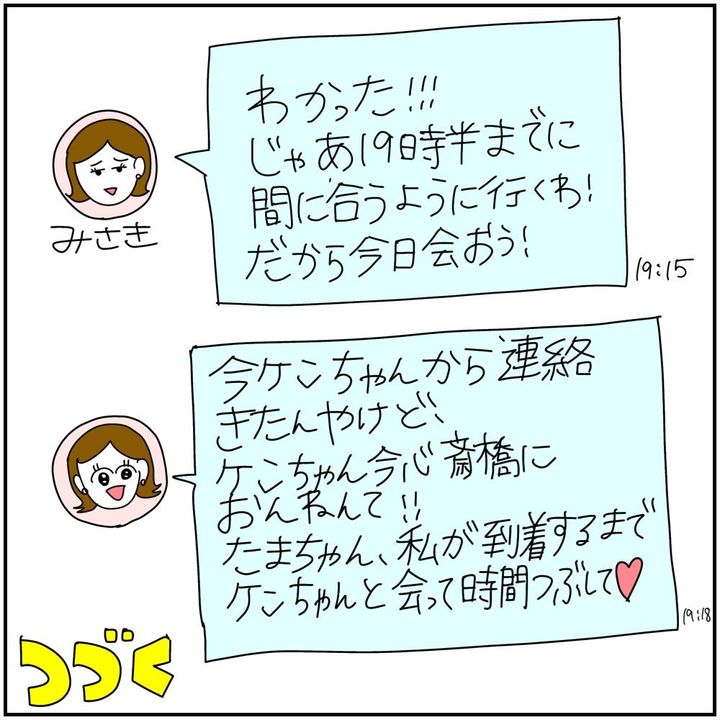 わかった!!!
じゃあ19時半までに
間に合うように行くわ!
だから今日会おう!
みさき
19:15
今ケンちゃんから連絡
きたんやけど、
ケンちゃん今心斎橋に
おんねんて!!
たまちゃん、私が到着するまで
ケンちゃんと会って時間つぶして♥
19:18
つづく